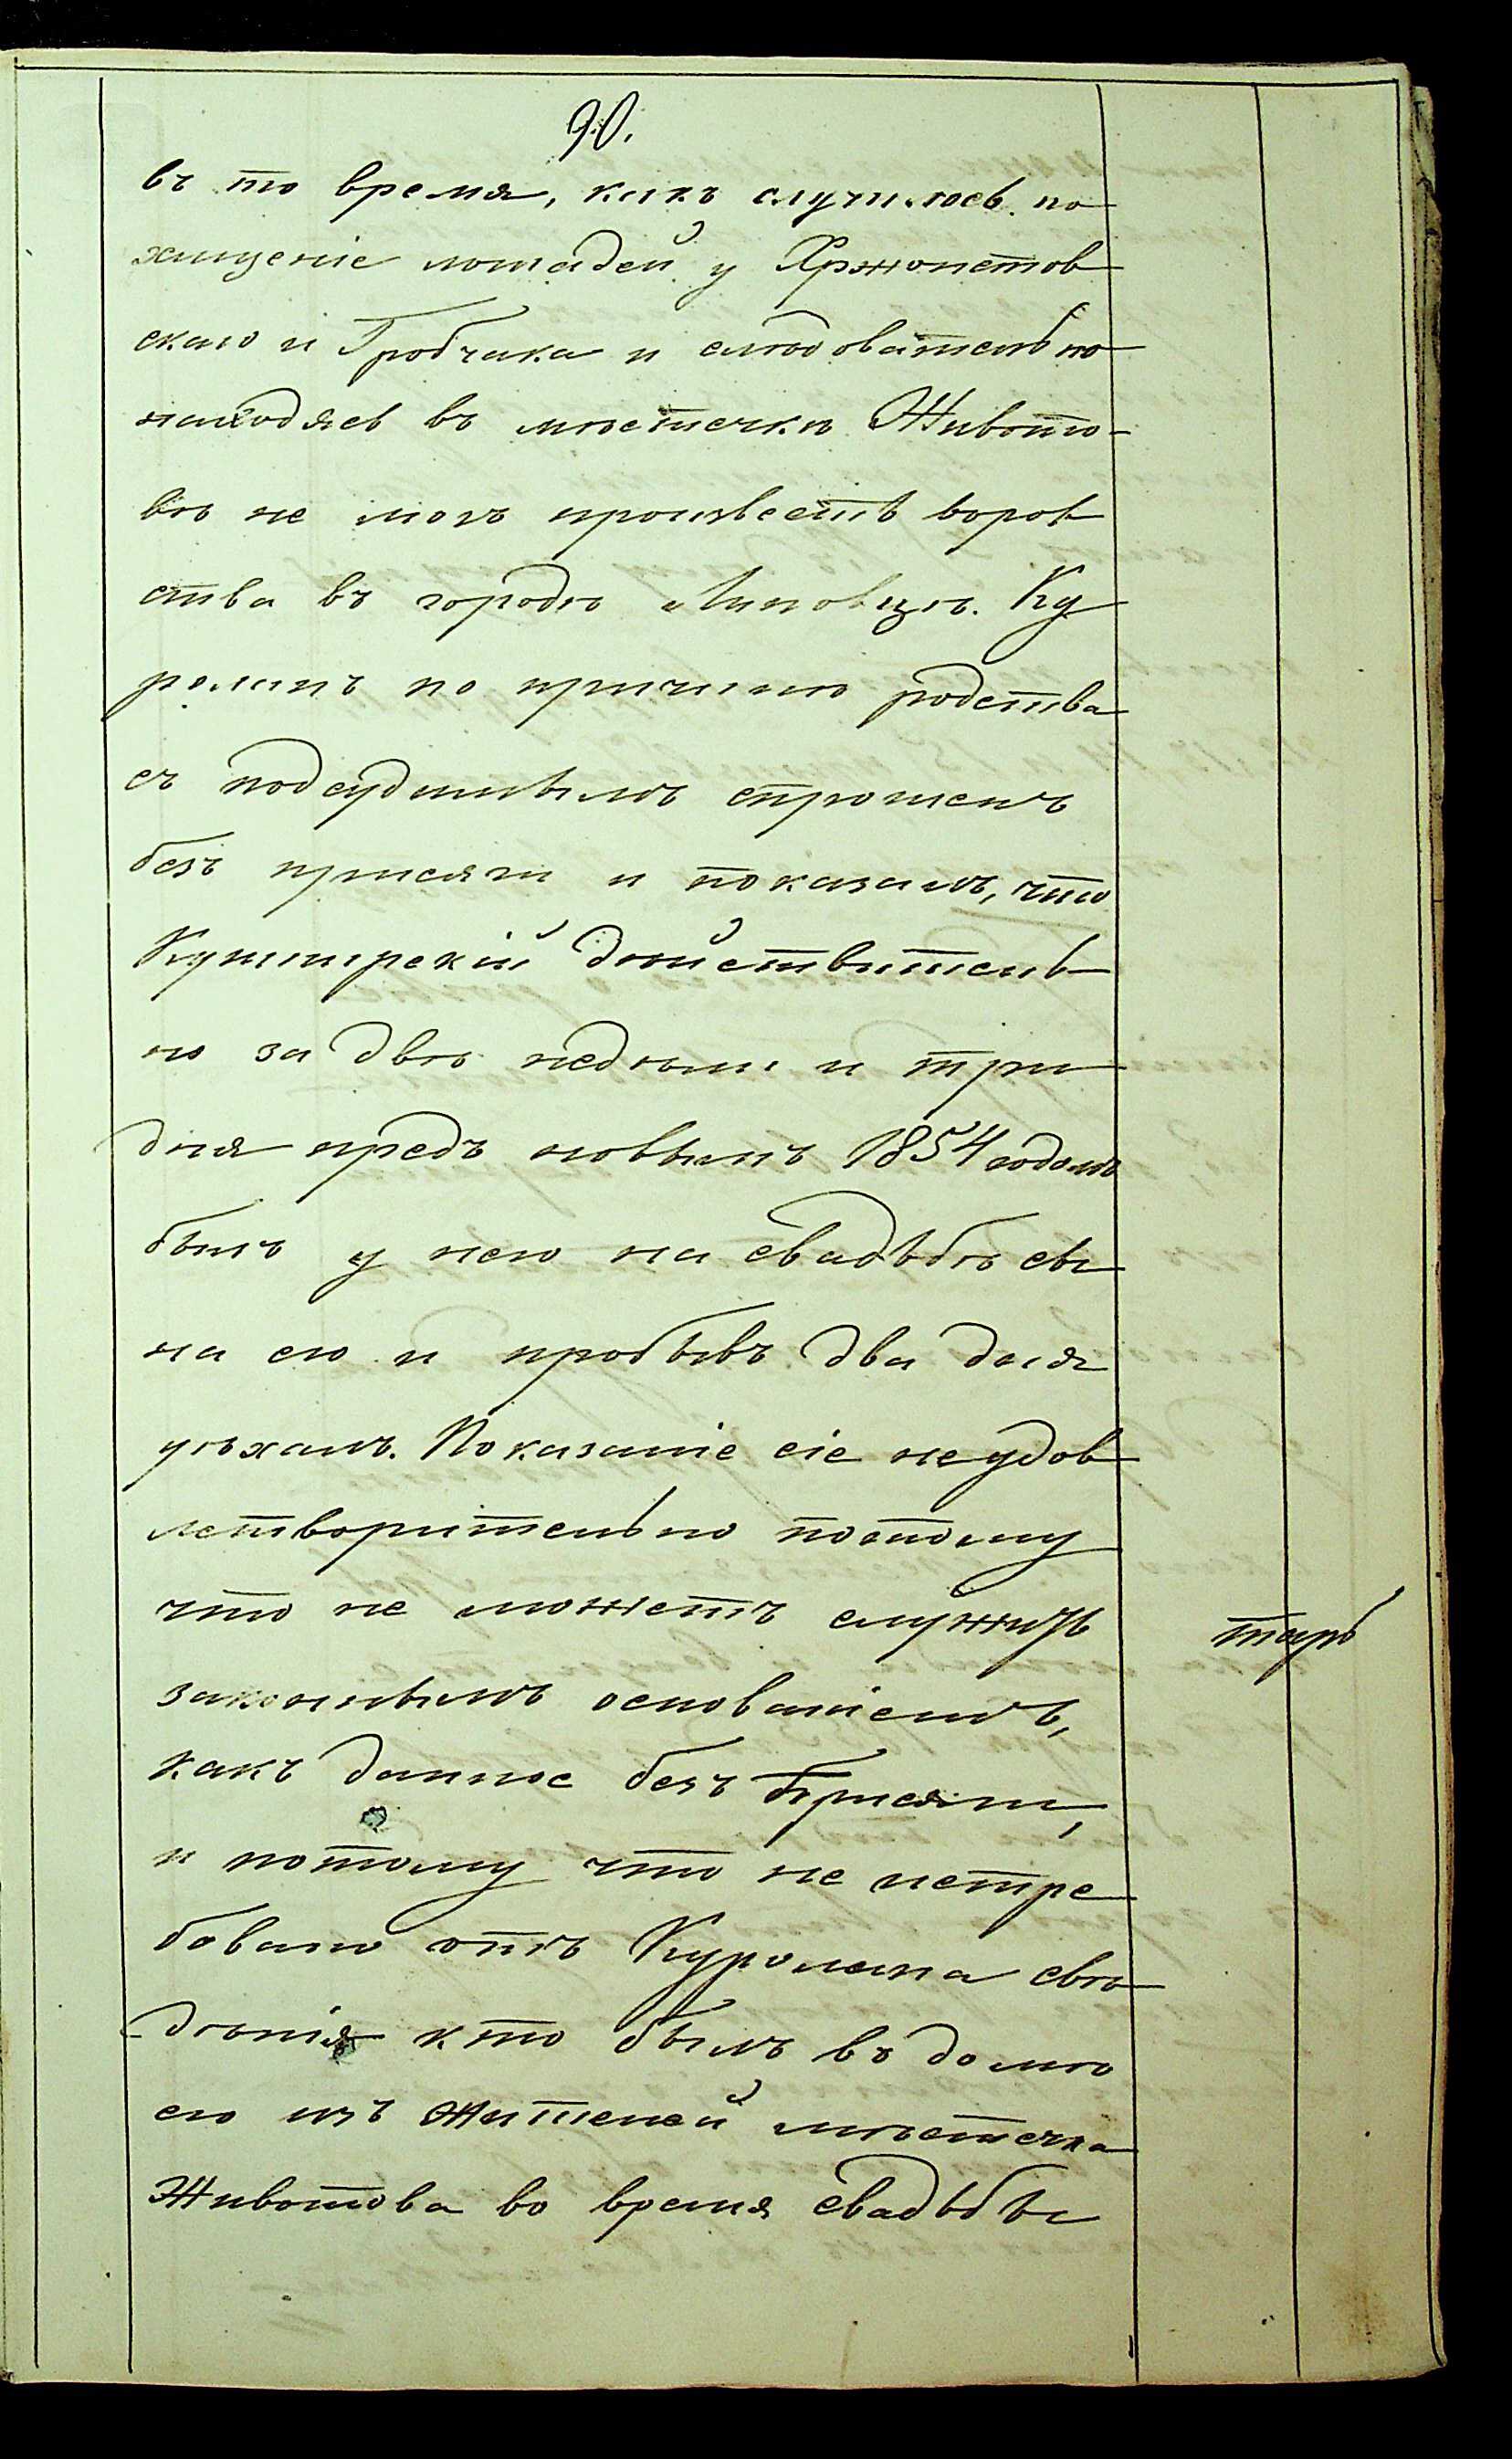 90.
въ то время, какъ случилось по
хищеніе лошадей у Хржонстов
скаго и Гробчака и слѣдовательно
находясь въ мѣстечкѣ Живото-
вѣ не могъ произвесть воров
ства въ городѣ Липовцѣ. Ку
роланъ по причинѣ родства
съ подсудимымъ спрошенъ
безъ присяги и показалъ, что
Кушнирскій дѣйствитель
но за двѣ недѣли и три
дня предъ новымъ 1854 годомъ
былъ у него на свадьбѣ сы
на его и пробывъ два дня
уѣхалъ. Показаніе сіе неудов
летворительно потому
что не можетъ служить
законнымъ основаніемъ,
какъ данное безъ присяги,
и потому что не истре
бовано отъ Куролана свѣ
дѣнія кто былъ въ домѣ
его изъ жителей мѣстечка
Животова во время свадьбы